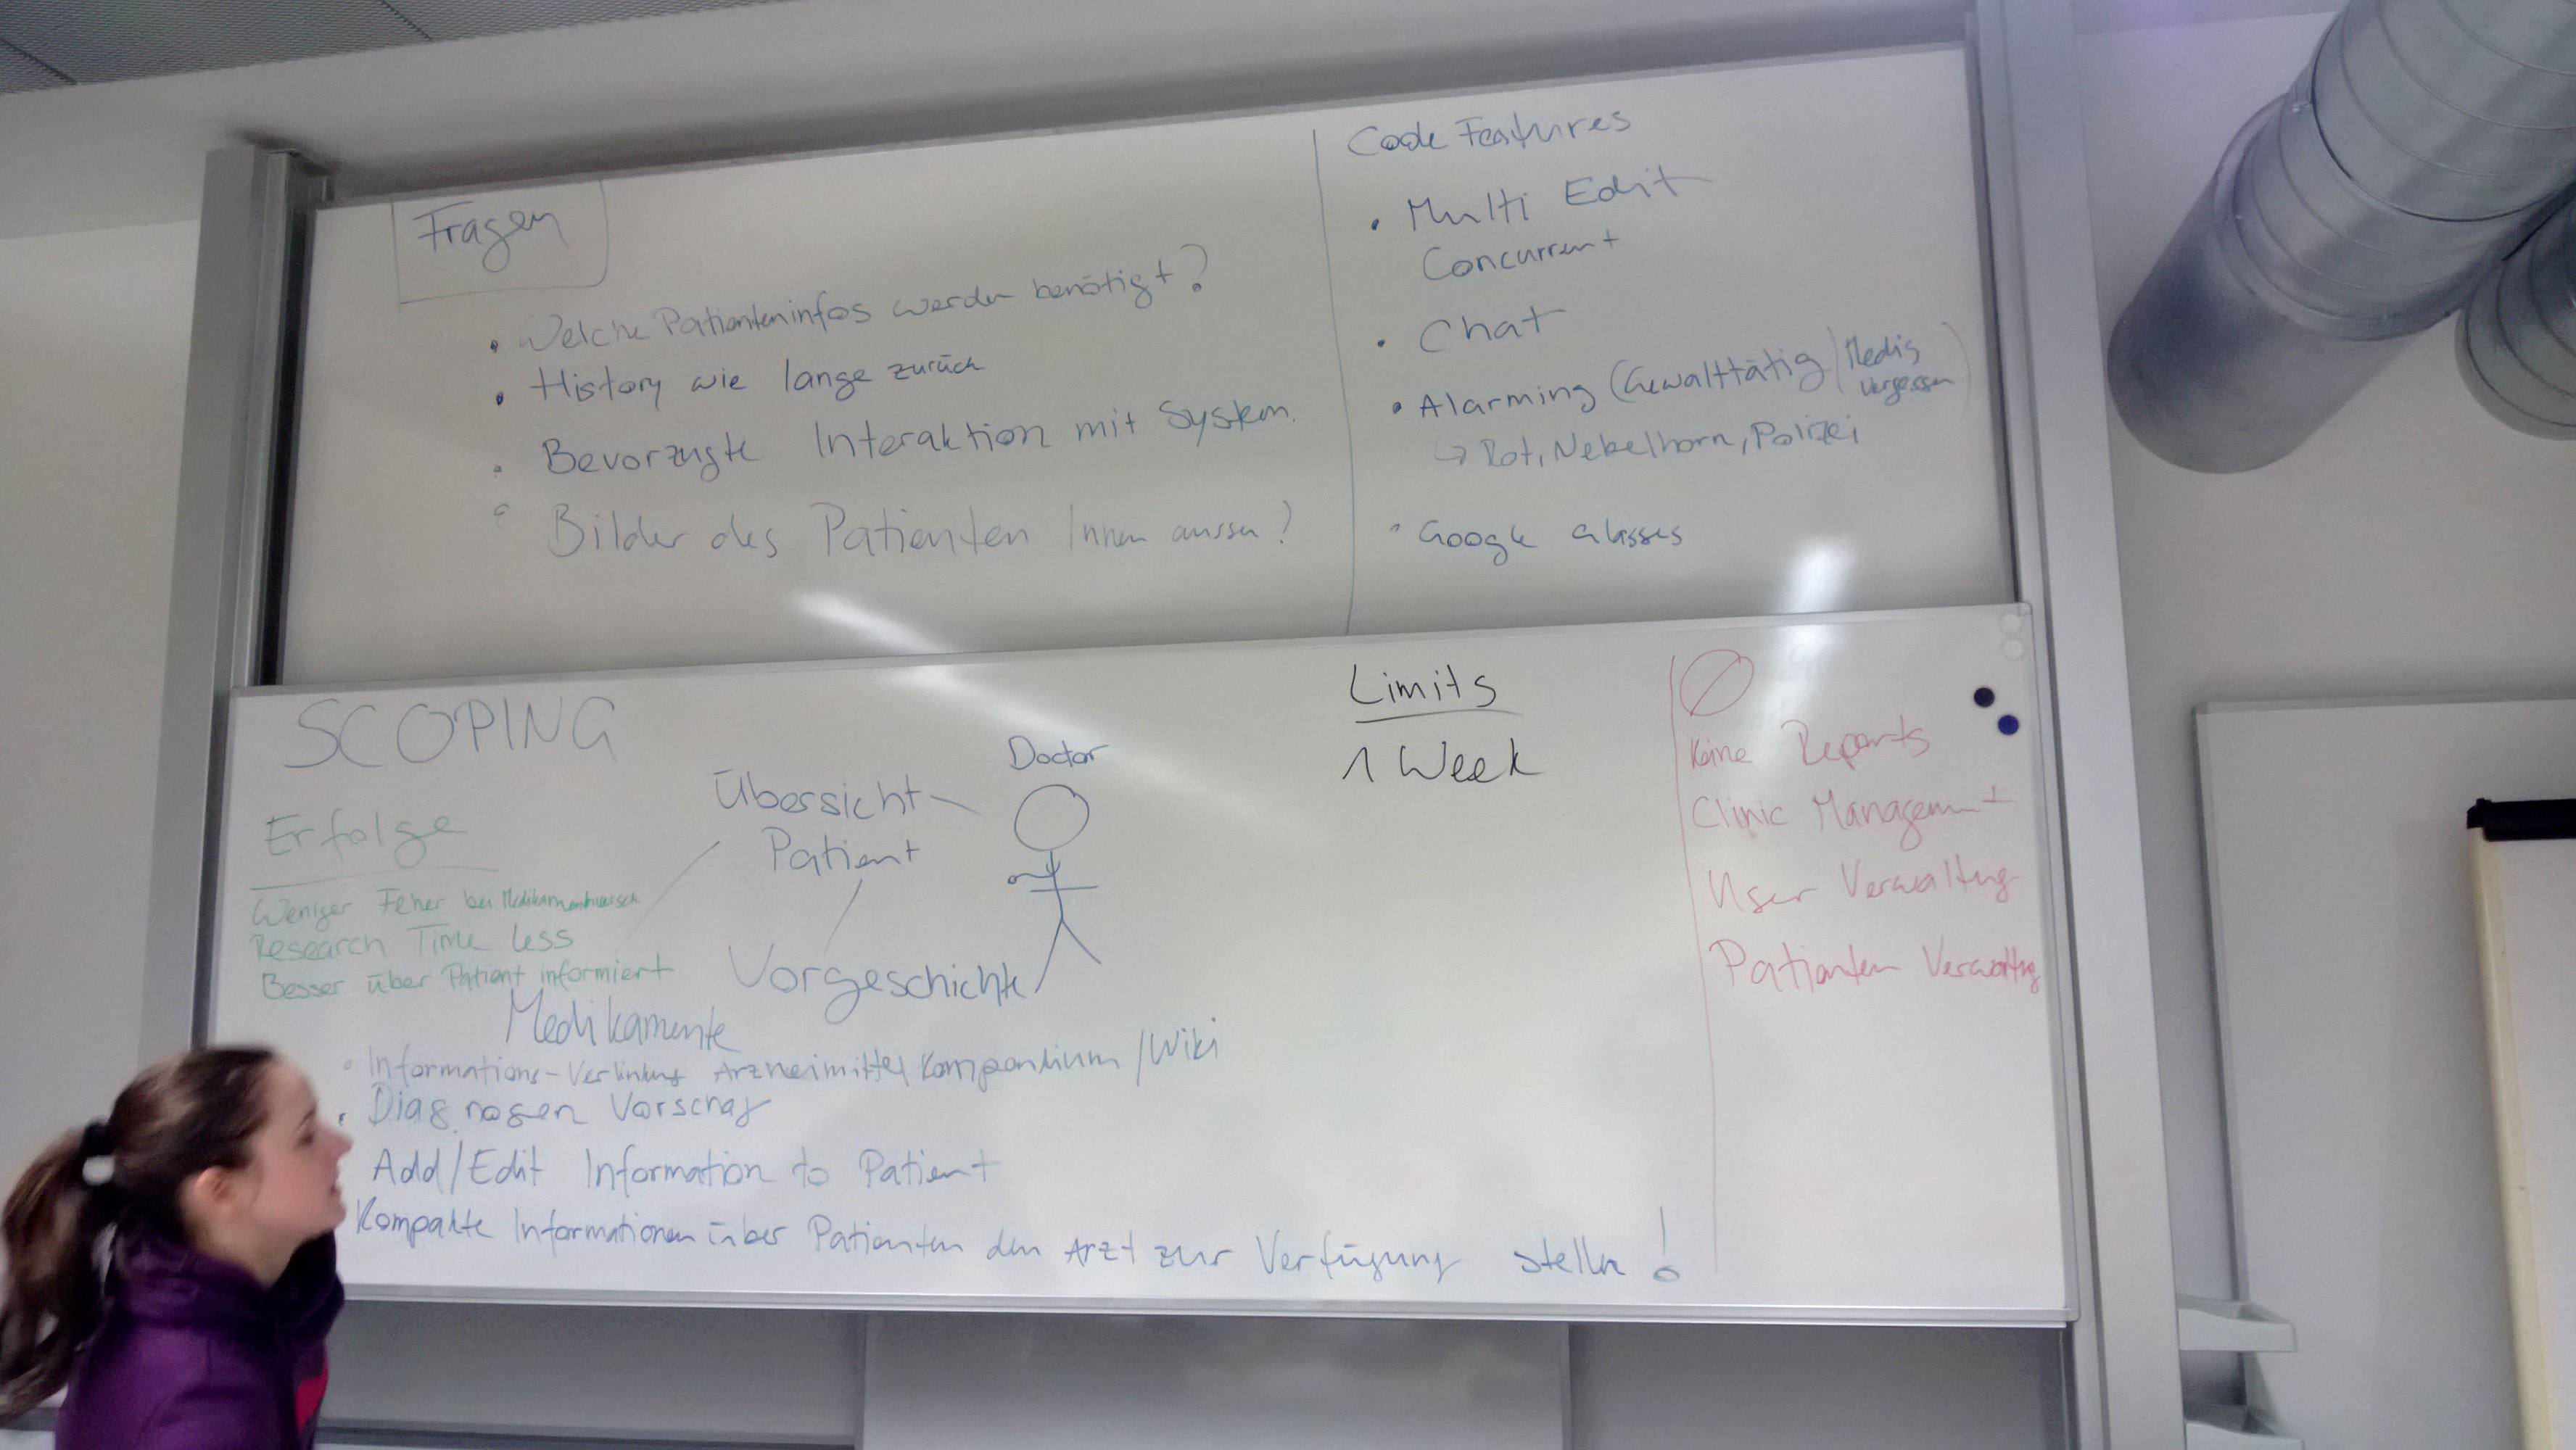 Fragen
• Welche Patienteninfos werden benötigt?
• History wie lange zurück
• Bevorzugte Interaktion mit System.
• Bilder des Patienten Innen aussen?
Code Features
• Multi Edit
Concurrent
• Chat
• Alarming (Gewalttätig / Medis
vergessen)
↳ Rot, Nebelhorn, Polizei
• Google Glasses
SCOPING
Erfolge
Weniger Feher bei
Research Time less
Besser über Patient informiert
Übersicht
Patient
Doctor
Vorgeschichte
Medikamente
• Informations-Verlinkung Arzneimittel Kompendium / Wiki
• Diagnosen Vorschag
Add/Edit Information to Patient
Kompakte Informationen über Patienten den Arzt zur Verfügung stellen!
Limits
1 Week
Keine Reports
Clinic Management
User Verwaltung
Patienten Verwaltung